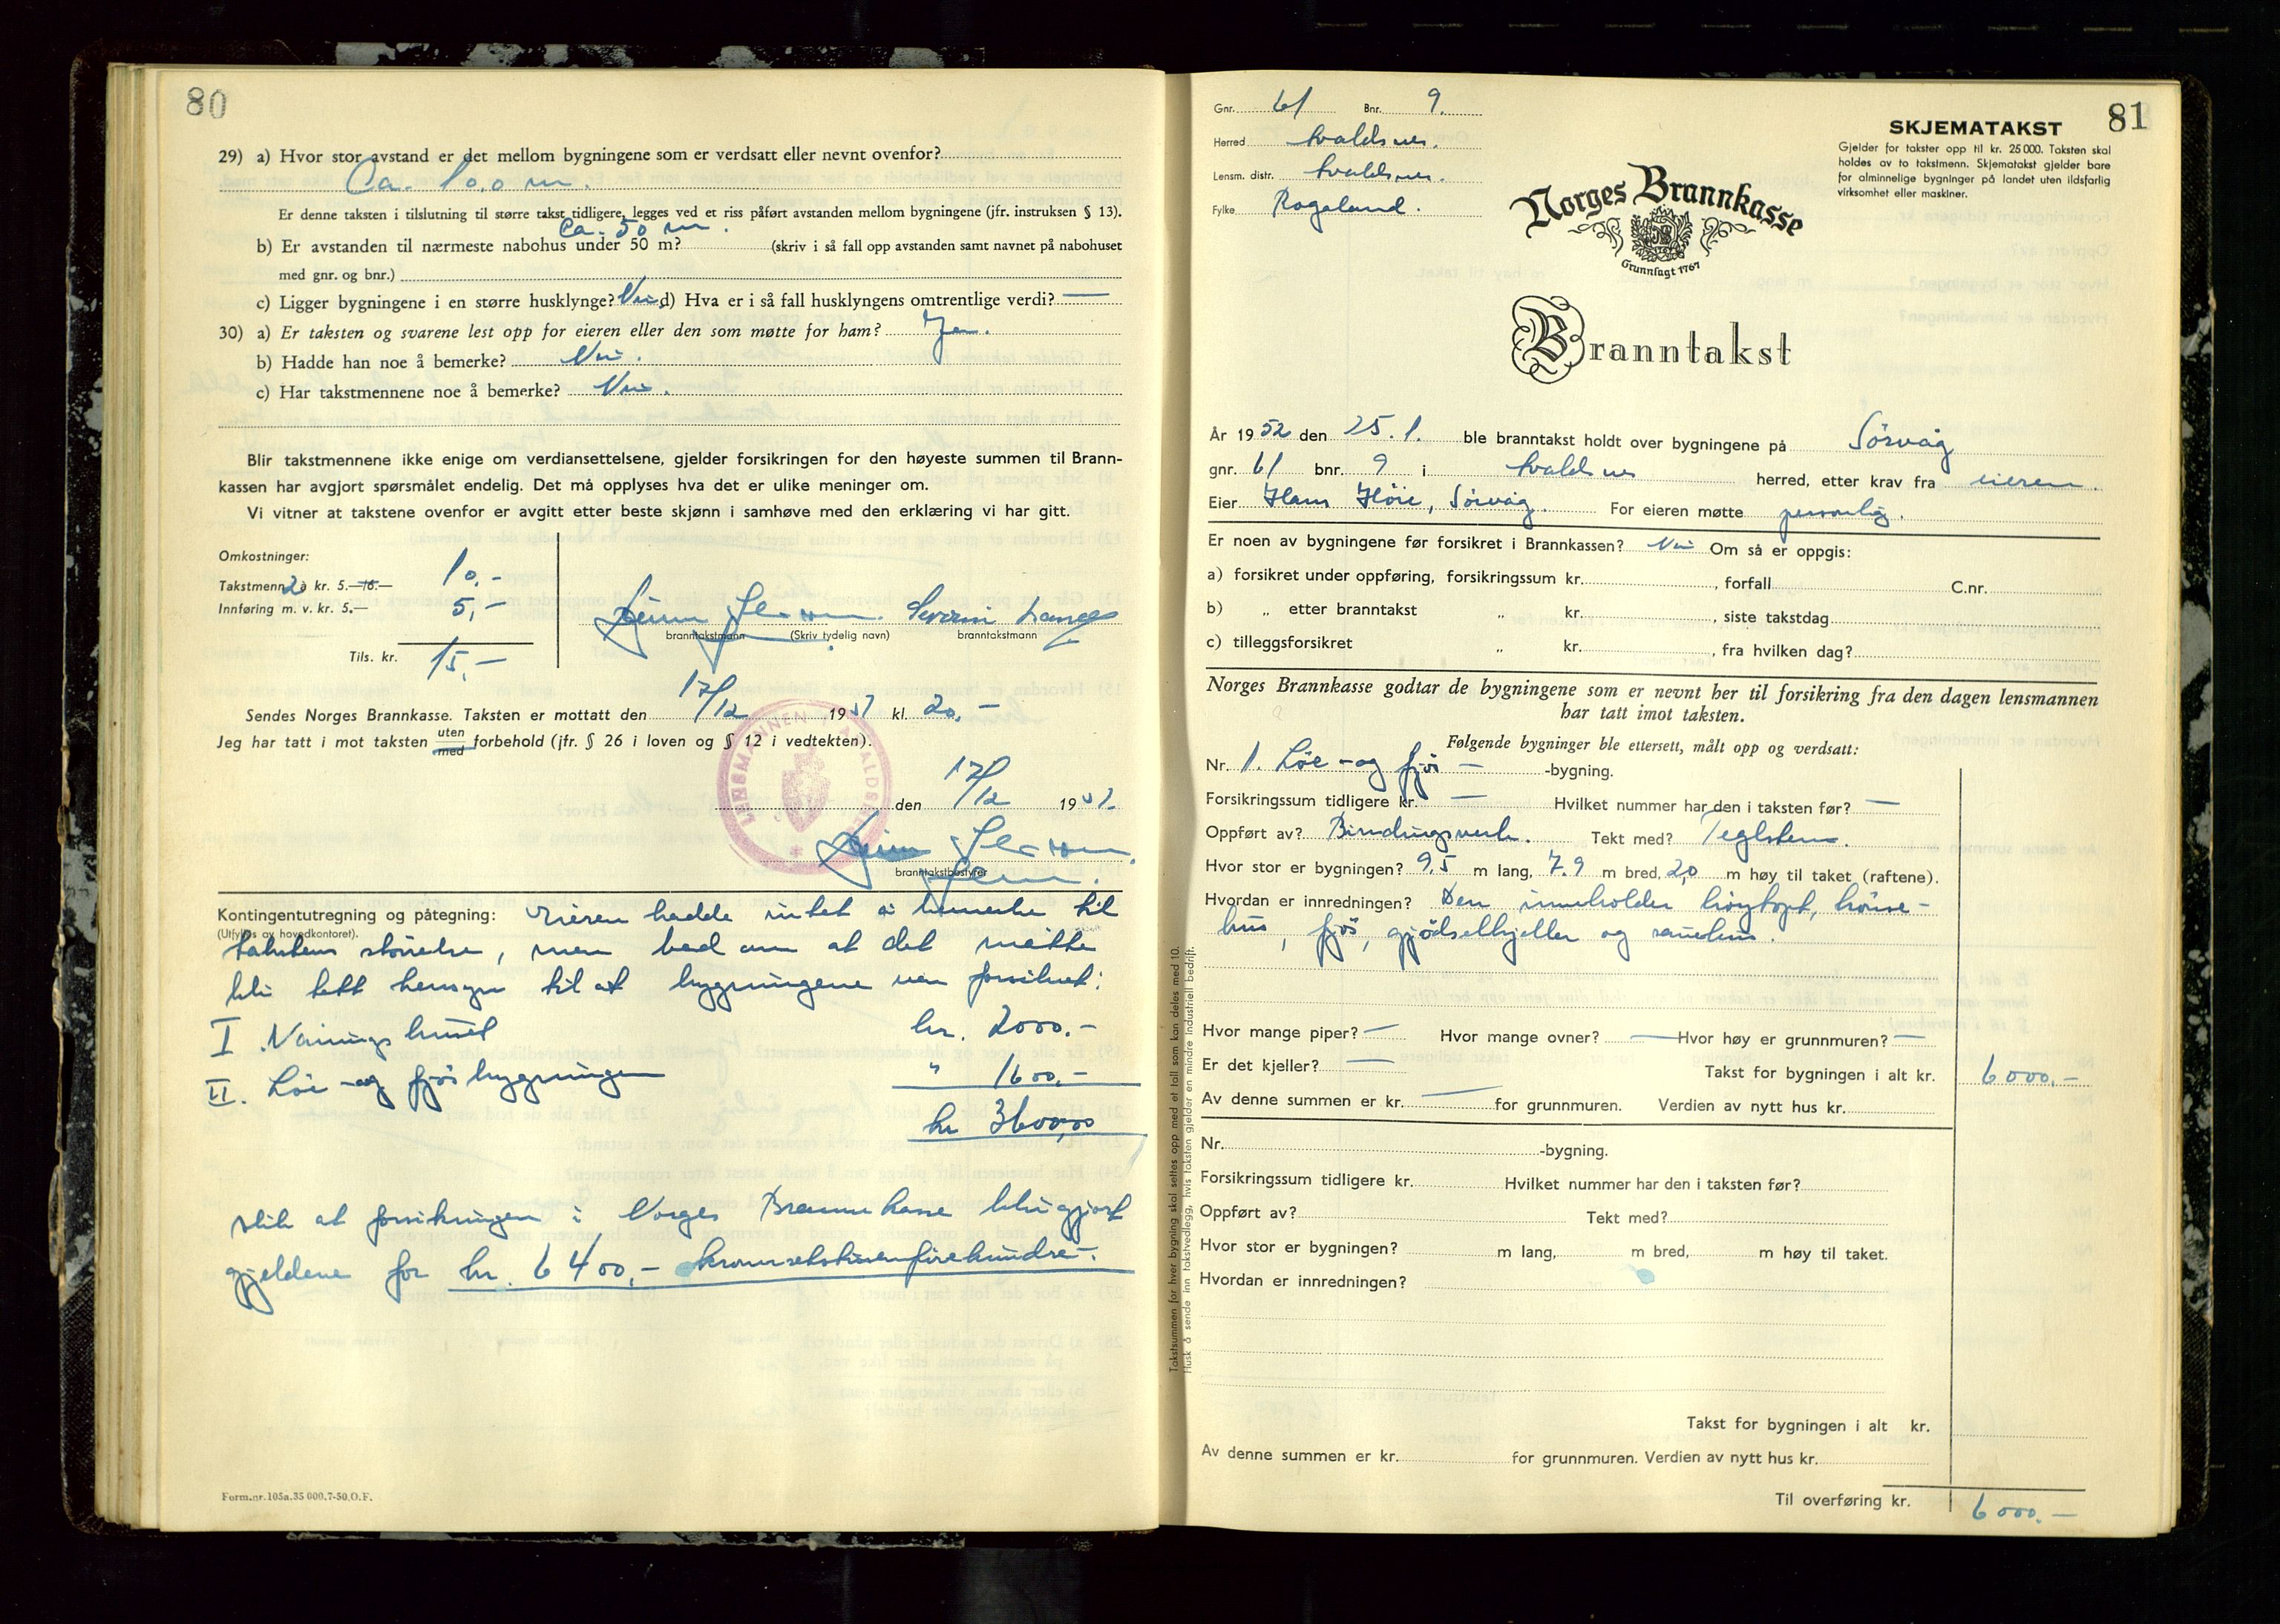 80
29) a) Hvor stor avstand er det mellom bygningene som er verdsatt eller nevnt ovenfor?
Ca. 10.0 m.
Er denne taksten i tilslutning til større takst tidligere, legges ved et riss påført avstanden mellom bygningene (jfr. instruksen § 13).
Ca. 50 m.
b) Er avstanden til nærmeste nabohus under 50 m? (skriv i så fall opp avstanden samt navnet på nabohuset
med gnr. og bnr.)
c) Ligger bygningene i en større husklynge? Nei d) Hva er i så fall husklyngens omtrentlige verdi? —
30) a) Er taksten og svarene lest opp for eieren eller den som møtte for ham? Ja.
b) Hadde han noe å bemerke? Nei.
c) Har takstmennene noe å bemerke? Nei.
Blir takstmennene ikke enige om verdiansettelsene, gjelder forsikringen for den høyeste summen til Brann-
kassen har avgjort spørsmålet endelig. Det må opplyses hva det er ulike meninger om.
Vi vitner at takstene ovenfor er avgitt etter beste skjønn i samhøve med den erklæring vi har gitt.
Omkostninger:
Takstmenn 2 à kr. 5.—10.— 10,-
Innføring m. v. kr. 5.— 5,-
Tils. kr. 15,-
branntakstmann (Skriv tydelig navn) branntakstmann
Sendes Norges Brannkasse. Taksten er mottatt den 17/12 1951 kl. 20,-
Jeg har tatt i mot taksten uten/med forbehold (jfr. § 26 i loven og § 12 i vedtekten).
LENSMANNEN I AVALDSNES
den 17/12 1951.
branntakstbestyrer
Kontingentutregning og påtegning: Eieren hadde intet å bemerke til
(Utfylles av hovedkontoret).
takstens störrelse, men bad om at det måtte
bli tatt hensyn til at bygningene var forsikret:
I Våningshuset kr. 2000.-
II. Löe - og fjösbygningen " 1600,-
kr 3600,00
slik at forsikringen i Norges Brannkasse blir gjort
gjeldene for kr. 6400,- kronersekstusenfirehundre-.
Form.nr.105a.35 000.7-50.O.F.
81
Gnr. 61 Bnr. 9.
Herred Avaldsnes.
Lensm. distr. Avaldsnes.
Fylke Rogaland.
SKJEMATAKST
Gjelder for takster opp til kr. 25 000. Taksten skal
holdes av to takstmenn. Skjematakst gjelder bare
for alminnelige bygninger på landet uten ildsfarlig
virksomhet eller maskiner.
Norges Brannkasse
Grunnlagt 1767
Branntakst
År 1952 den 25.1. ble branntakst holdt over bygningene på Sörvåg
gnr. 61 bnr. 9 i Avaldsnes herred, etter krav fra eieren.
Eier Hans Höie, Sörvåg. For eieren møtte personlig.
Er noen av bygningene før forsikret i Brannkassen? Nei Om så er oppgis:
a) forsikret under oppføring, forsikringssum kr. , forfall C.nr.
b) „ etter branntakst „ kr. , siste takstdag
c) tilleggsforsikret „ kr. , fra hvilken dag?
Norges Brannkasse godtar de bygningene som er nevnt her til forsikring fra den dagen lensmannen
har tatt imot taksten.
Følgende bygninger ble ettersett, målt opp og verdsatt:
Nr. 1. Löe - og fjös - -bygning.
Forsikringssum tidligere kr. — Hvilket nummer har den i taksten før? —
Oppført av? Bindingsverk. Tekt med? Teglsten.
Hvor stor er bygningen? 9,5 m lang, 7.9 m bred, 2,0 m høy til taket (raftene).
Hvordan er innredningen? Den inneholder höytopt, hönse-
hus, fjös, gjödselkjeller og sauehus.
Hvor mange piper? — Hvor mange ovner? — Hvor høy er grunnmuren? —
Er det kjeller? — Takst for bygningen i alt kr. 6000.-
Av denne summen er kr. — for grunnmuren. Verdien av nytt hus kr.
Nr. -bygning.
Forsikringssum tidligere kr. Hvilket nummer har den i taksten før?
Oppført av? Tekt med?
Hvor stor er bygningen? m lang, m bred, m høy til taket.
Hvordan er innredningen?
Takst for bygningen i alt kr.
Av denne summen er kr. for grunnmuren. Verdien av nytt hus kr.
Til overføring kr. 6000.-
Takstsummen for hver bygning skal settes opp med et tall som kan deles med 10.
Husk å sende inn takstvedlegg, hvis taksten gjelder en mindre industriell bedrift.